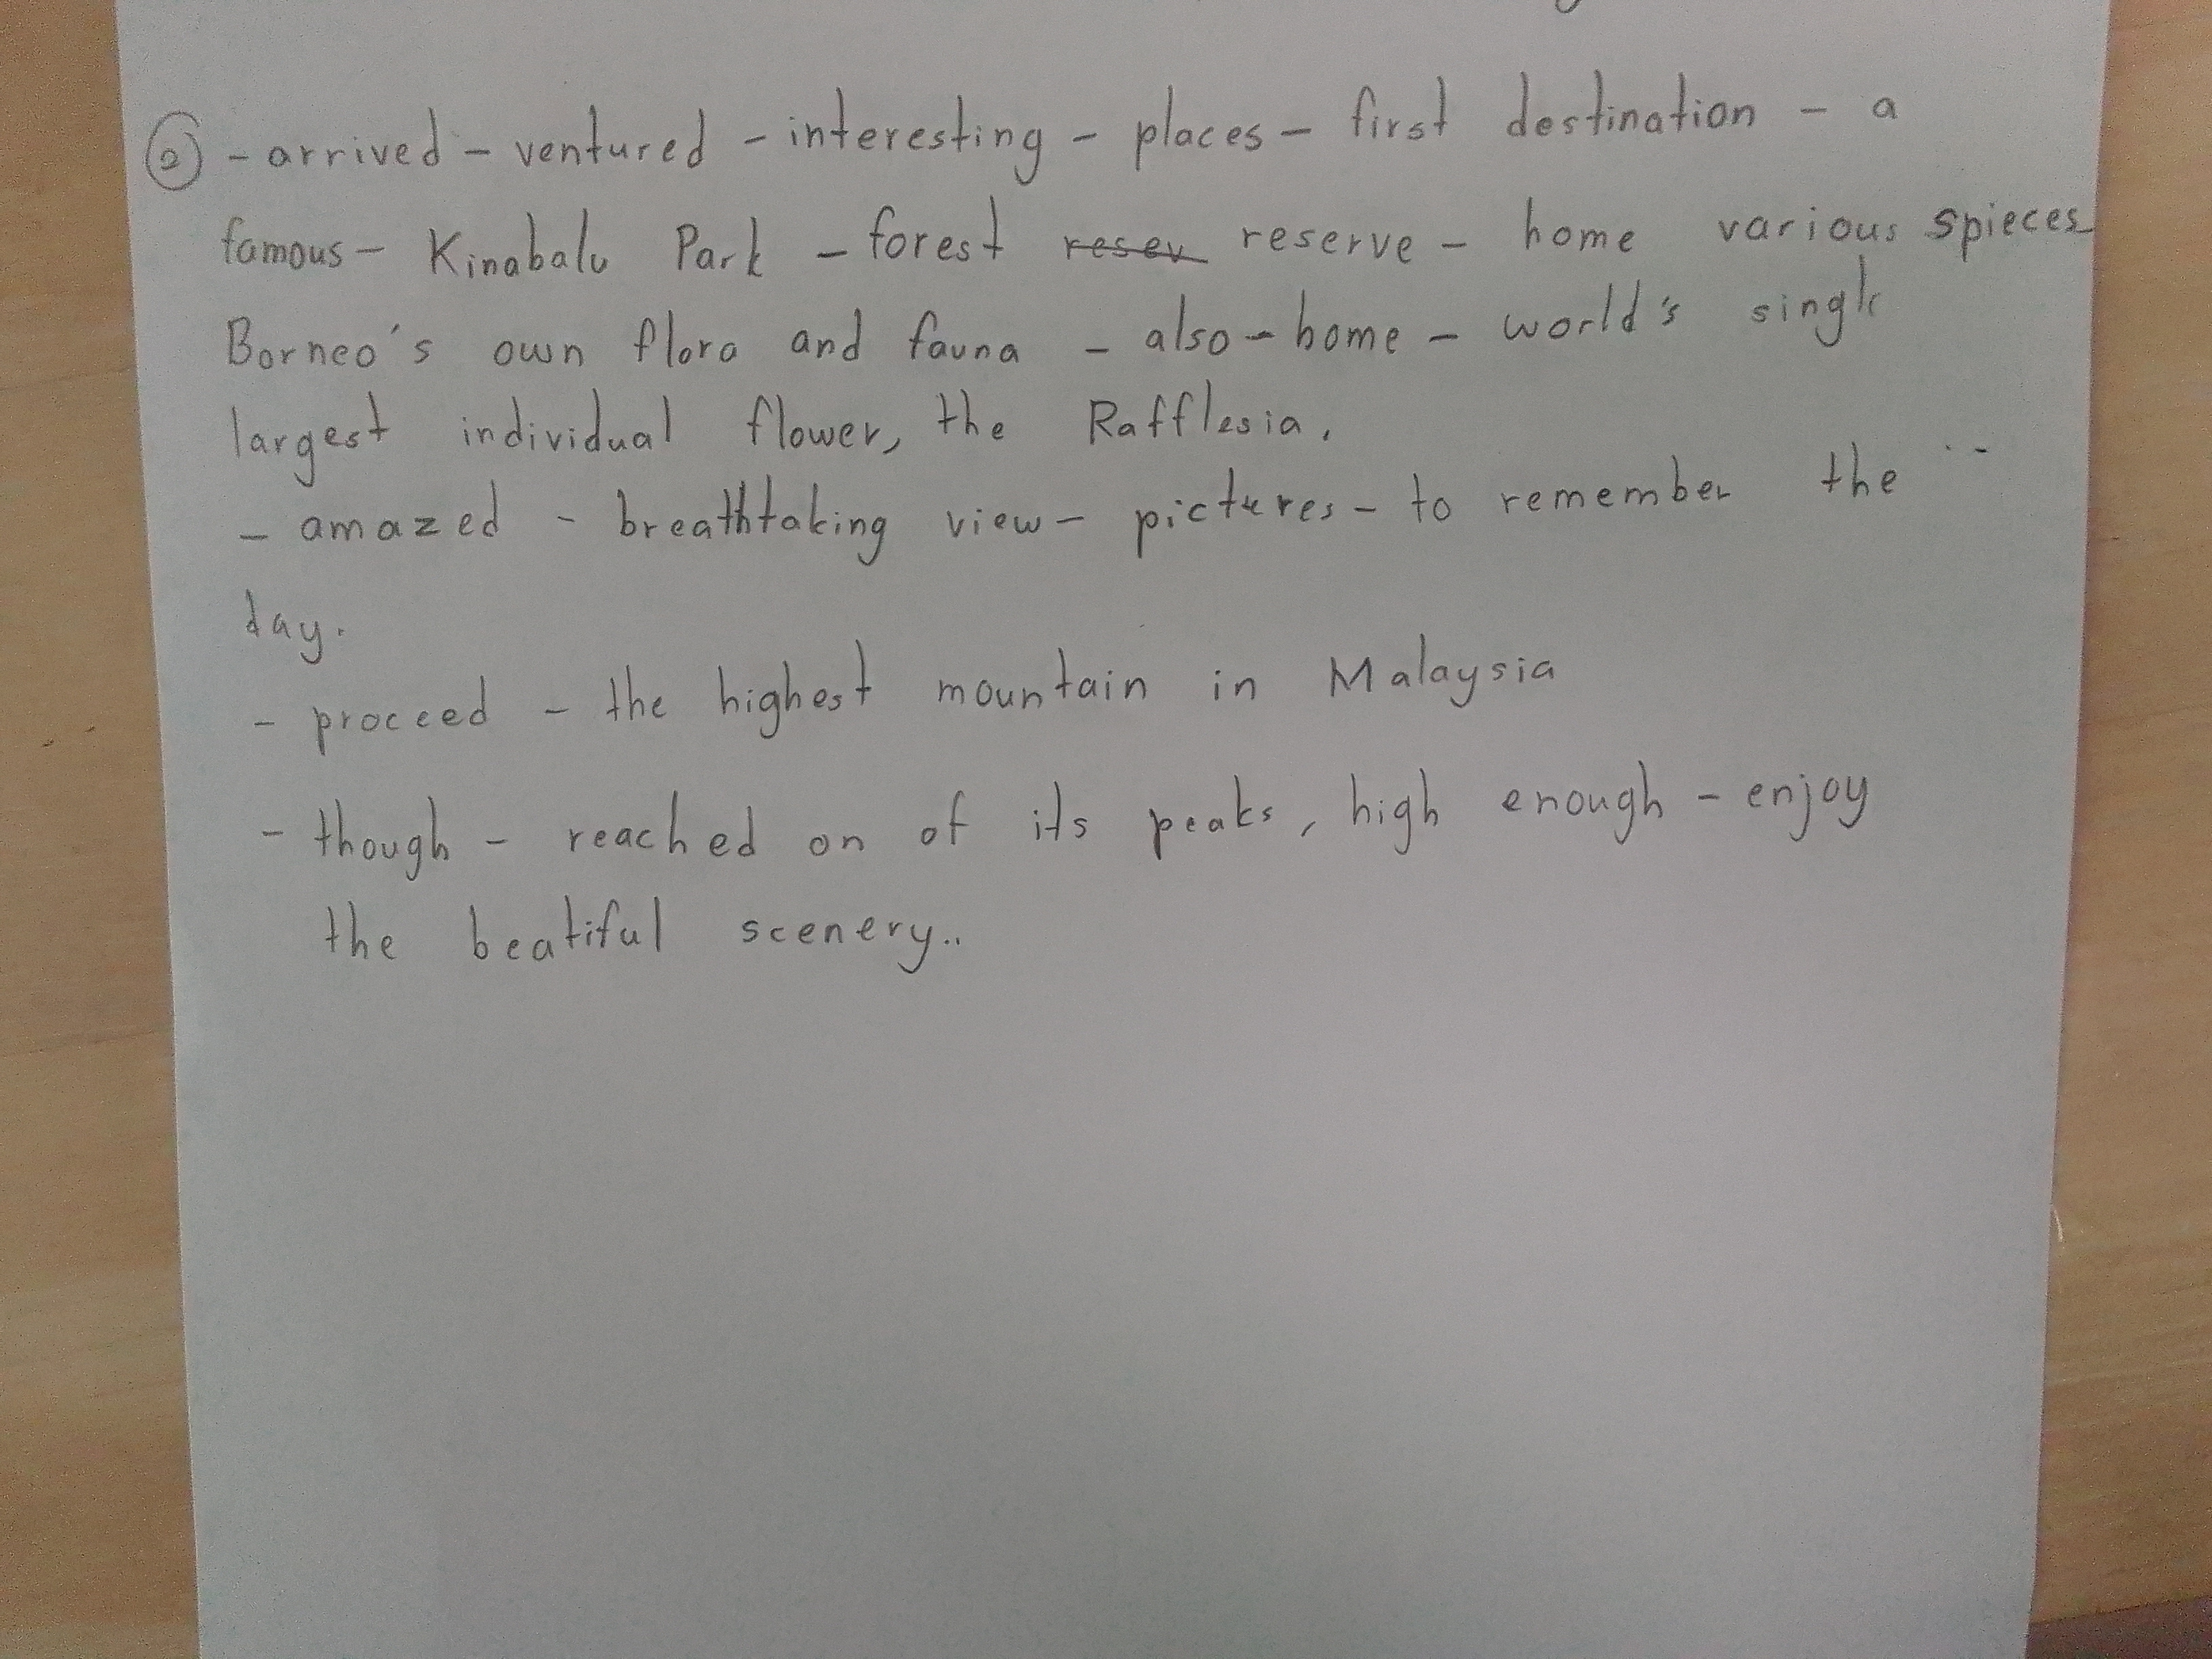 ② - arrived - ventured - interesting - places - first destination - a
famous - Kinabalu Park - forest resev reserve - home various spieces
Borneo's own flora and fauna - also - home - world's single
largest individual flower, the Rafflesia.
- amazed - breathtaking view - pictures - to remember the
day.
- proceed - the highest mountain in Malaysia
- though - reached on of its peaks, high enough - enjoy
the beatiful scenery..